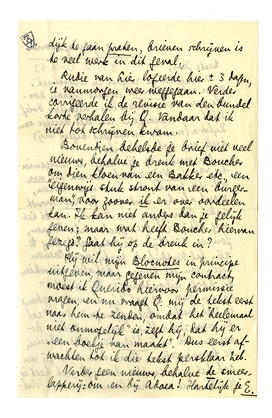 dijk te gaan praten, brieven schrijven is
te veel werk in dit geval.
Rudie van Lier logeerde hier ± 3 dagen,
is vanmorgen weer weggegaan. Verder
corrigeerde ik de revisie van den bundel
korte verhalen bij Q. Vandaar dat ik
niet tot schrijven kwam.
Bovendien behelsde je brief niet veel
nieuws, behalve je drenkt met Boucher
om dien kloen van een Bakker etc., een
"eigenwijs stuk stront van een burger-
man", voor zoover ik er over oordeelen
kan. Ik kan niet anders dan je gelijk
geven; maar wat heeft Boucher hiervan
gezegd? Gaat hij op de
Hij wil mijn Blocnotes in principe
uitgeven, maar ingevolge mijn contract,
moest ik Querido hiervoor permissie
vragen, en nu vraagt Q. mij de tekst eerst
naar hem te zenden, omdat het heelemaal
niet onmogelijk is, zegt hij, dat hij er
"een boekje van maakt". Dus eerst af-
wachten tot ik die tekst persklaar heb.
Verder geen nieuws, behalve de
om en bij Adoea! Hartelijk je E.